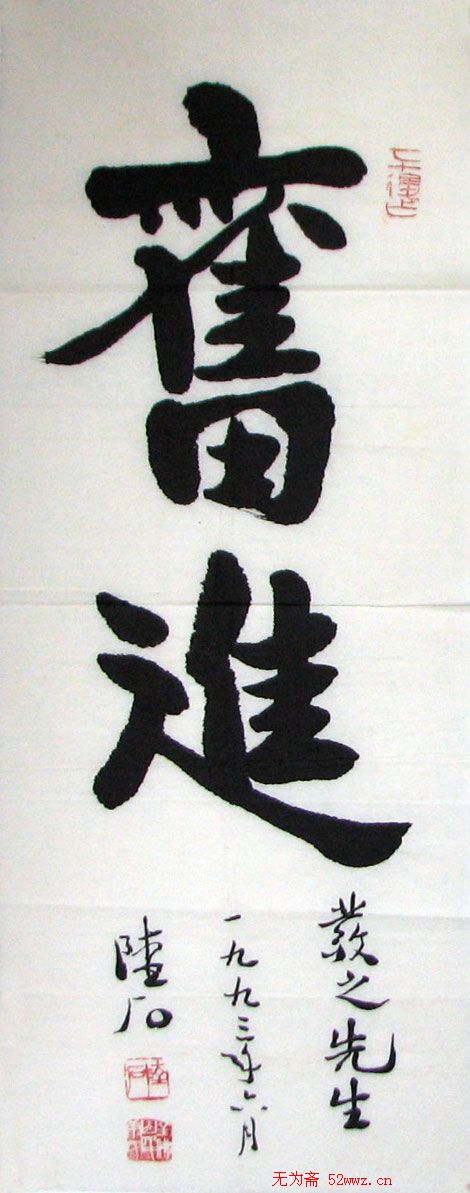 奮進
發之先生
一九九三年六月
陸石
无为斋 52wwz.cn